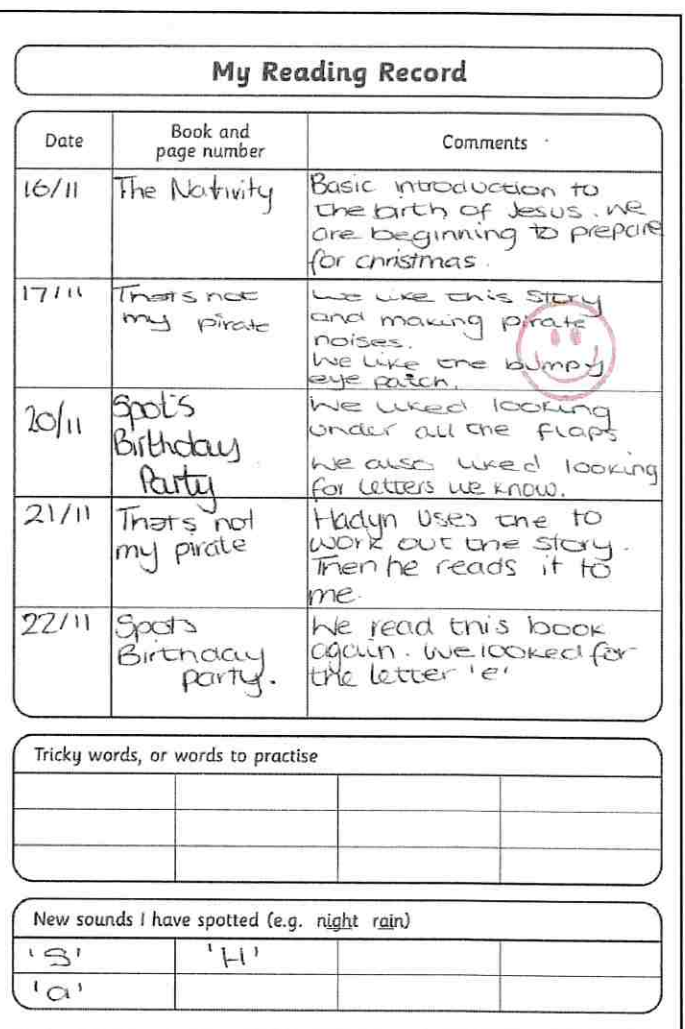 My Reading Record
Date
Book and
page number
Comments
16/11
The Nativity
Basic introduction to
the birth of Jesus. we
are beginning to prepare
for christmas.
17/11
Thats not
my pirate
We like this story
and making pirate
noises.
We like the bumpy
eye patch.
20/11
Spot's
Birthday
Party
We liked looking
under all the flaps
We also liked looking
for letters we know.
21/11
That's not
my pirate
Hadyn uses the to
work out the story.
Then he reads it to
me.
22/11
Spots
Birthday
party.
We read this book
again. We looked for
the letter 'e'
Tricky words, or words to practise
New sounds I have spotted (e.g. night rain)
'S'
'H'
'a'